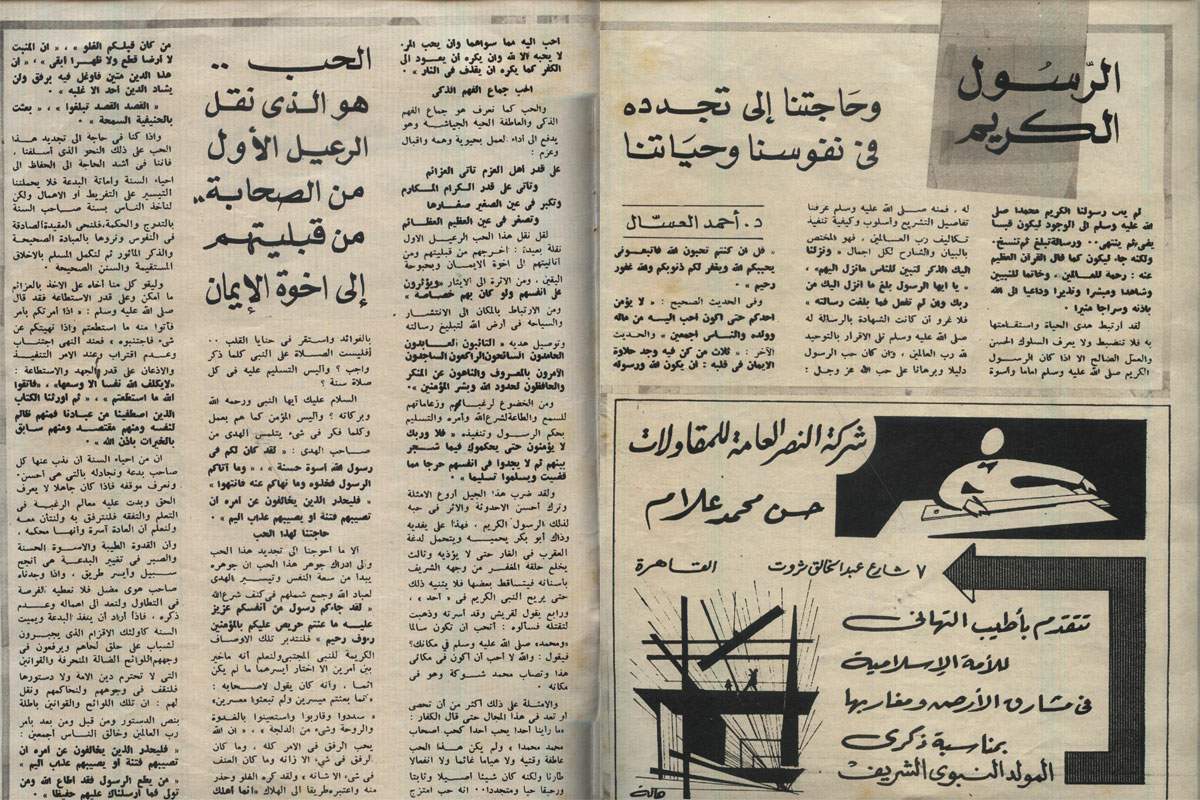 الرسول
الكريم
وحاجتنا إلى تجدده
في نفوسنا وحياتنا
د. أحمد العسال
لم يمت رسولنا الكريم محمدا صلى
الله عليه وسلم الى الوجود ليكون قبسا
يضىء ثم ينتهى .. ورسالة تبلغ ثم تنسخ .
ولكنه جاء ليكون كما قال القرآن العظيم
عنه : رحمة للعالمين ، وخاتما للنبيين
وشاهدا ومبشرا ونذيرا وداعيا الى الله
باذنه وسراجا منيرا .
لقد ارتبط هدى الحياة واستقامتها
به فلا تنضبط ولا يعرف السلوك الحسن
والعمل الصالح الا اذا كان الرسول
الكريم صلى الله عليه وسلم اماما واسوة
له ، فمنه صلى الله عليه وسلم عرفنا
تفاصيل التشريع وأسلوب وكيفية تنفيذ
تكاليف رب العالمين ، فهو المختص
بالبيان والشارح لكل اجمال « ونزلنا
اليك الذكر لتبين للناس مانزل اليهم » ،
« يا أيها الرسول بلغ ما أنزل اليك من
ربك وان لم تفعل فما بلغت رسالته »
فلا غرو ان كانت الشهادة بالرسالة له
صلى الله عليه وسلم تلى الاقرار بالتوحيد
لله رب العالمين ، وان كان حب الرسول
دليلا وبرهانا على حب الله عز وجل :
« قل ان كنتم تحبون الله فاتبعونى
يحببكم الله ويغفر لكم ذنوبكم والله غفور
رحيم »
وفى الحديث الصحيح : « لا يؤمن
احدكم حتى أكون أحب اليه من ماله
وولده والناس أجمعين » والحديث
الآخر : « ثلاث من كن فيه وجد حلاوة
الايمان فى قلبه : ان يكون الله ورسوله
شركة النصر العامة للمقاولات
حسن محمد علام
٧ شارع عبدالخالق ثروت القاهرة
تتقدم بأطيب التهانى
للأمة الإسلامية
فى مشارق الأرض ومغاربها
بمناسبة ذكرى
المولد النبوى الشريف
هالة
احب اليه مما سواهما وان يحب المرء
لا يحبه الا لله وان يكره ان يعود الى
الكفر كما يكره ان يقذف فى النار » .
الحب جماع الفهم الذكى
والحب كما نعرف هو جماع الفهم
الذكى والعاطفة الحية الجياشة وهو
يدفع الى أداء العمل بحيوية وهمة واقبال
وعزم :
على قدر اهل العزم تأتى العزائم
وتأتى على قدر الكرام المكارم
وتكبر فى عين الصغير صغارها
وتصغر فى عين العظيم العظائم
لقد نقل هذا الحب الرعيل الاول
نقلة بعيدة : أخرجهم من قبليتهم ومن
أنانيتهم الى اخوة الايمان وبحبوحة
اليقين ، ومن الاثرة الى الايثار «ويؤثرون
على أنفسهم ولو كان بهم خصاصة »
ومن الارتباط بالمكان الى الانتشار
والسياحة فى أرض الله لتبليغ رسالته
وتوصيل هديه « التائبون العابدون
الحامدون السائحون الراكعون الساجدون
الآمرون بالمعروف والناهون عن المنكر
والحافظون لحدود الله وبشر المؤمنين » .
ومن الخضوع لرغباتهم وزعاماتهم
للسمع والطاعة لشرع الله وأمره والتسليم
بحكم الرسول وتنفيذه « فلا وربك
لا يؤمنون حتى يحكموك فيما شجر
بينهم ثم لا يجدوا فى أنفسهم حرجا مما
قضيت ويسلموا تسليما » .
ولقد ضرب هذا الجيل أروع الامثلة
وترك أحسن الاحدوثة والاثر فى حبه
لذلك الرسول الكريم . فهذا على يفديه
وذاك أبو بكر يحميه ويتحمل لدغة
العقرب فى الغار حتى لا يؤذيه وثالث
يخلع حلقة المغفر من وجهه الشريف
بأسنانه فيتساقط بعضها فلا يثنيه ذلك
حتى يريح النبى الكريم فى « أحد » ،
ورابع يقول لقريش وقد أسرته وذهبت
لتقتله فسألوه : أتحب ان تكون سالما
«ومحمد» صلى الله عليه وسلم فى مكانك؟
فيقول : والله لا أحب ان أكون فى مكانى
هذا وتصاب محمد شوكة وهو فى
مكانه .
والامثلة على ذلك أكثر من ان تحصى
أو تعد فى هذا المجال حتى قال الكفار :
« ما رأينا أحدا يحب أحدا كحب أصحاب
محمد محمدا » ولم يكن هذا الحب
عاطفة وقتية ولا هياما غائما ولا انفعالا
طارئا ولكنه كان شيئا أصيلا وثابتا
ورحيقا حيا ومتجددا .. انه حب امتزج
الحب ..
هو الذى نقل
الرعيل الأول
من الصحابة..
من قبليتهم
إلى اخوة الإيمان
بالفؤاد واستقر فى حنايا القلب ..
أفليست الصلاة على النبى كلما ذكر
واجب ؟ وأليس التسليم عليه فى كل
صلاة سنة ؟
السلام عليك أيها النبى ورحمة الله
وبركاته ؟ وأليس المؤمن كما هم بعمل
وكلما فكر فى شىء يتلمس الهدى من
صاحب الهدى : « لقد كان لكم فى
رسول الله أسوة حسنة » ، « وما آتاكم
الرسول فخذوه وما نهاكم عنه فانتهوا »
« فليحذر الذين يخالفون عن أمره ان
تصيبهم فتنة أو يصيبهم عذاب أليم » .
حاجتنا لهذا الحب
ألا ما أحوجنا الى تجديد هذا الحب
والى ادراك جوهر هذا الحب ان جوهره
يبدأ من سعة النفس وتيسير الهدى
لعباد الله وجمع شملهم فى كنف شرع الله
« لقد جاءكم رسول من أنفسكم عزيز
عليه ما عنتم حريص عليكم بالمؤمنين
رءوف رحيم » فلنتدبر تلك الاوصاف
الكريمة للنبى المجتبى ولنعلم أنه ماخير
بين أمرين الا اختار أيسرهما ما لم يكن
اثما ، وأنه كان يقول لاصحابه :
«انما بعثتم ميسرين ولم تبعثوا معسرين»
« سددوا وقاربوا واستعينوا بالغدوة
والروحة وشىء من الدلجة » ، « ان الله
يحب الرفق فى الامر كله ، وما كان
الرفق فى شىء الا زانه وما كان العنف
فى شىء الا شانه » ولقد كره الغلو وحذر
منه واعتبره طريقا الى الهلاك «انما أهلك
من كان قبلكم الغلو » ، « ان المنبت
لا أرضا قطع ولا ظهرا أبقى » ، « ان
هذا الدين متين فأوغل فيه برفق ولن
يشاد الدين أحد الا غلبه » .
« القصد القصد تبلغوا » ، « بعثت
بالحنيفية السمحة » .
واذا كنا فى حاجة الى تجديد هذا
الحب على ذلك النحو الذى أسلفنا ،
فاننا فى أشد الحاجة الى الحفاظ الى
احياء السنة واماتة البدعة فلا يحملنا
التيسير على التفريط أو الاهمال ولكن
لنأخذ الناس بسنة صاحب السنة
بالتدرج والحكمة، فلنحى العقيدة الصادقة
فى النفوس ونروها بالعبادة الصحيحة
والذكر المأثور ثم لنكمل المسلم بالاخلاق
المستقيمة والسنن الصحيحة .
وليقو كل منا أخاه على الاخذ بالعزائم
ما أمكن وعلى قدر الاستطاعة فقد قال
صلى الله عليه وسلم : « اذا أمرتكم بأمر
فأتوا منه ما استطعتم واذا نهيتكم عن
شىء فاجتنبوه » فعند النهى اجتناب
وعدم اقتراب وعند الامر التنفيذ
والاذعان على قدر الجهد والاستطاعة :
«لايكلف الله نفسا الا وسعها» ، «فاتقوا
الله ما استطعتم » ، « ثم أورثنا الكتاب
الذين اصطفينا من عبادنا فمنهم ظالم
لنفسه ومنهم مقتصد ومنهم سابق
بالخيرات باذن الله » .
ان من احياء السنة ان نذب عنها كل
صاحب بدعة ونجادله بالتى هى أحسن .
ونعرف موقفه فاذا كان جاهلا لا يعرف
الحق وبدت عليه معالم الرغبة فى
التعلم والتفقه فلنترفق به ولنتأن معه
ولنعلم ان العادة آسرة وأنها محكمة .
وان القدوة الطيبة والاسوة الحسنة
والصبر فى تغيير البدعة هى أنجح
سبيل وأيسر طريق ، واذا وجدناه
صاحب هوى مضل فلا نعطيه الفرصة
فى التطاول ولنعد الى اهماله وعدم
ذكره . فاذا أراد ان ينفذ البدعة ويميت
السنة كأولئك الاقزام الذى يجبرون
لشباب على حلق لحاهم ويرفعون فى
وجههم اللوائح الضالة المنحرفة والقوانين
التى لا تحترم دين الامة ولا دستورها
فلنقف فى وجوههم ولنحاكمهم ونقل
لهم : ان تلك اللوائح والقوانين باطلة
بنص الدستور ومن قبل ومن بعد بأمر
رب العالمين وخالق الناس أجمعين :
« فليحذر الذين يخالفون عن أمره ان
تصيبهم فتنة أو يصيبهم عذاب أليم »
« من يطع الرسول فقد أطاع الله ومن
تولى فما أرسلناك عليهم حفيظا » .